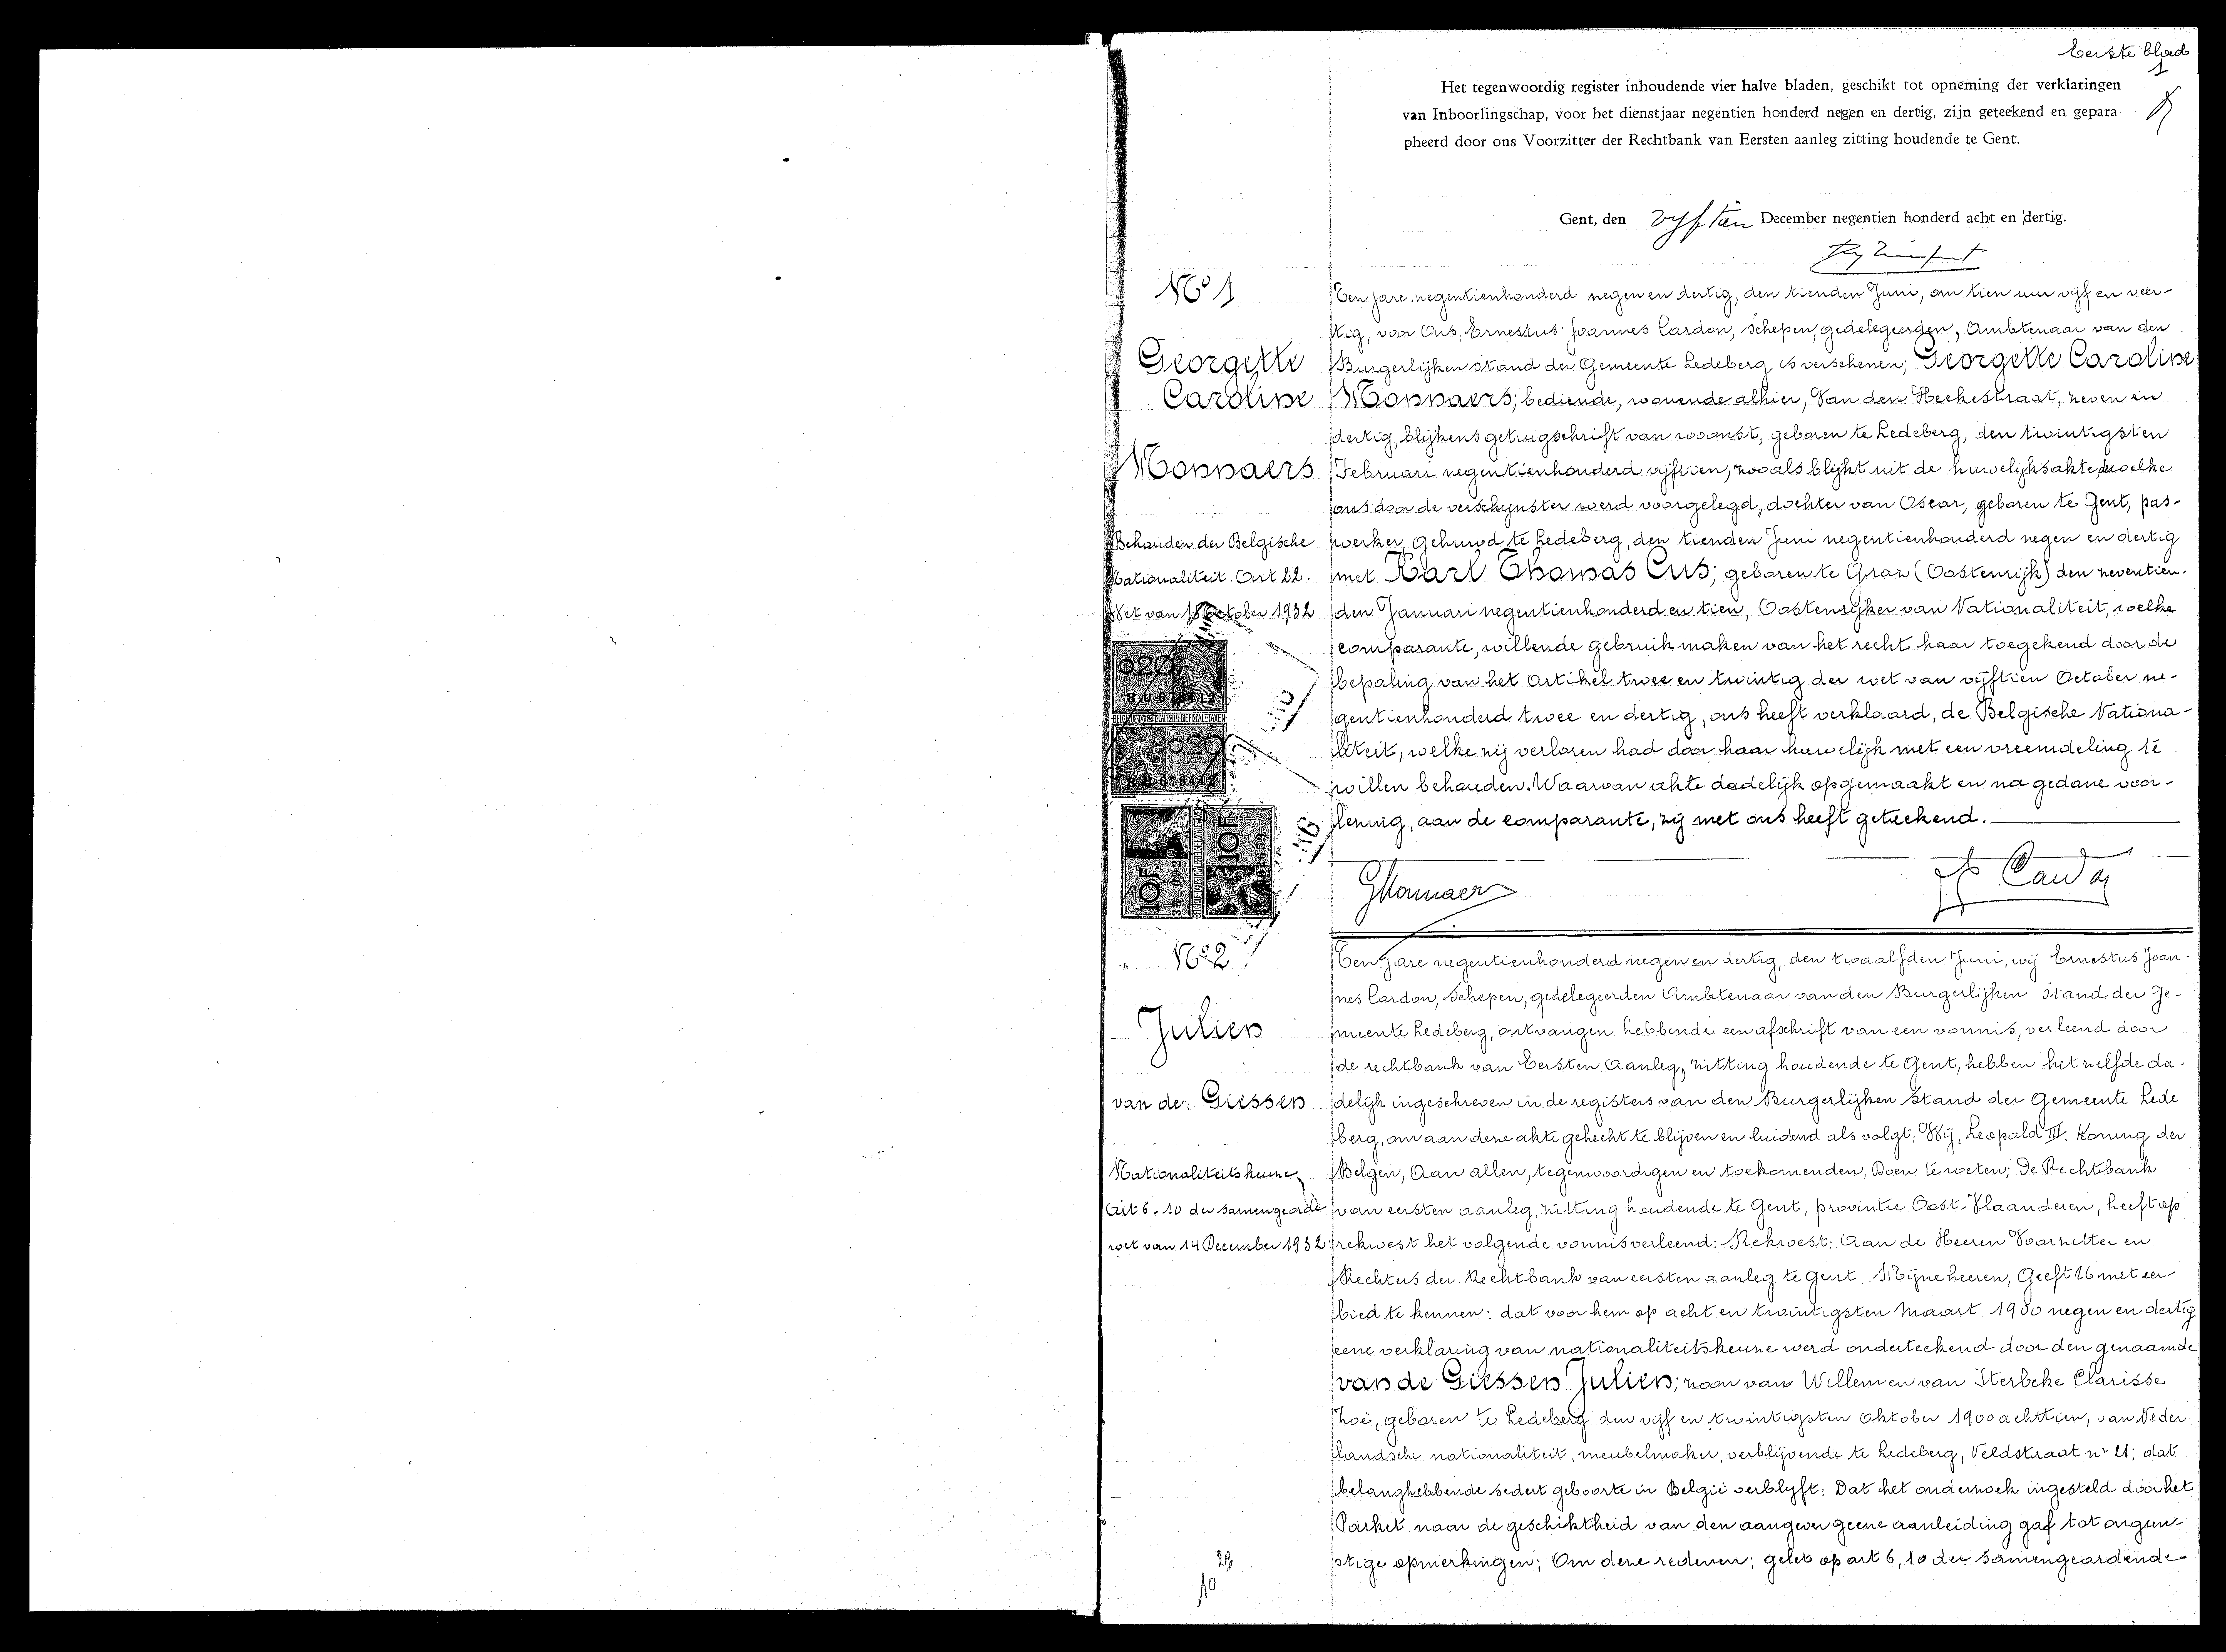 Eerste blad
1
Het tegenwoordig register inhoudende vier halve bladen, geschikt tot opneming der verklaringen
van Inboorlingschap, voor het dienstjaar negentien honderd negen en dertig, zijn geteekend en gepara
pheerd door ons Voorzitter der Rechtbank van Eersten aanleg zitting houdende te Gent.
Gent, den vyftien December negentien honderd acht en dertig.
No 1
Georgette
Caroline
Monnaers
Behouden der Belgische
Nationaliteit. Art 22.
Wet van 15 October 1932
Ten jare negentienhonderd negen en dertig, den tienden Juni, om tien uur vijf en veer-
tig, voor Ons, Ernestus Joannes Cardon, schepen, gedelegeerden, Ambtenaar van den
Burgerlijken stand der Gemeente Ledeberg is verschenen; Georgette Caroline
Monnaers; bediende, wonende alhier, Van den Heckestraat, zeven en
dertig, blijkens getuigschrift van woonst, geboren te Ledeberg, den twintigsten
Februari negentienhonderd vijftien, zooals blijkt uit de huwelijksakte, dewelke
ons door de verschijnster werd voorgelegd, dochter van Oscar, geboren te Gent, pas-
werker, gehuwd te Ledeberg, den tienden Juni negentienhonderd negen en dertig
met Karl Thomas Cus; geboren te Graz (Oostenrijk) den zeventien-
den Januari negentienhonderd en tien, Oostenrijker van Nationaliteit, welke
comparante, willende gebruik maken van het recht haar toegekend door de
bepaling van het artikel twee en twintig der wet van vijftien October ne-
gentienhonderd twee en dertig, ons heeft verklaard, de Belgische Nationa-
liteit, welke zij verloren had door haar huwelijk met een vreemdeling te
willen behouden. Waarvan akte dadelijk opgemaakt en na gedane voor-
lezing, aan de comparante, zij met ons heeft geteekend.
020
BU678412
020
BU678412
10F
10F
GMonnaers
Cardon
No 2
Julien
van de Giessen
Nationaliteitskeuze
Art 6. 10 der samengeorde
wet van 14 December 1932
Ten jare negentienhonderd negen en dertig, den twaalfden Juni, wij Ernestus Joan-
nes Cardon, schepen, gedelegeerden Ambtenaar van den Burgerlijken stand der Ge-
meente Ledeberg, ontvangen hebbende een afschrift van een vonnis, verleend door
de rechtbank van Eersten Aanleg, zitting houdende te Gent, hebben hetzelfde da-
delijk ingeschreven in de registers van den Burgerlijken Stand der Gemeente Lede
berg, om aan deze akte gehecht te blijven en luidend als volgt: Wij, Leopold III. Koning der
Belgen, Aan allen, tegenwoordigen en toekomenden, Doen te weten; De Rechtbank
van eersten aanleg, zitting houdende te Gent, provintie Oost-Vlaanderen, heeft op
rekwest het volgende vonnis verleend: Rekwest: Aan de Heeren Voorzitter en
Rechters der Rechtbank van eersten aanleg te Gent. Mijne heeren, Geeft U met eer-
bied te kennen: dat voor hem op acht en twintigsten Maart 1900 negen en dertig
eene verklaring van nationaliteitskeuze werd onderteekend door den genaamde
van de Giessen Julien; zoon van Willem en van Sterbeke Clarisse
Zoë, geboren te Ledeberg den vijf en twintigsten Oktober 1900 achttien, van Neder
landsche nationaliteit, meubelmaker, verblijvende te Ledeberg, Veldstraat nr 21; dat
belanghebbende sedert geboorte in België verblyft: Dat het onderzoek ingesteld door het
Parket naar de geschiktheid van den aangever geene aanleiding gaf tot ongun-
stige opmerkingen; Om deze redenen; gelet op art 6, 10 der samengeordende